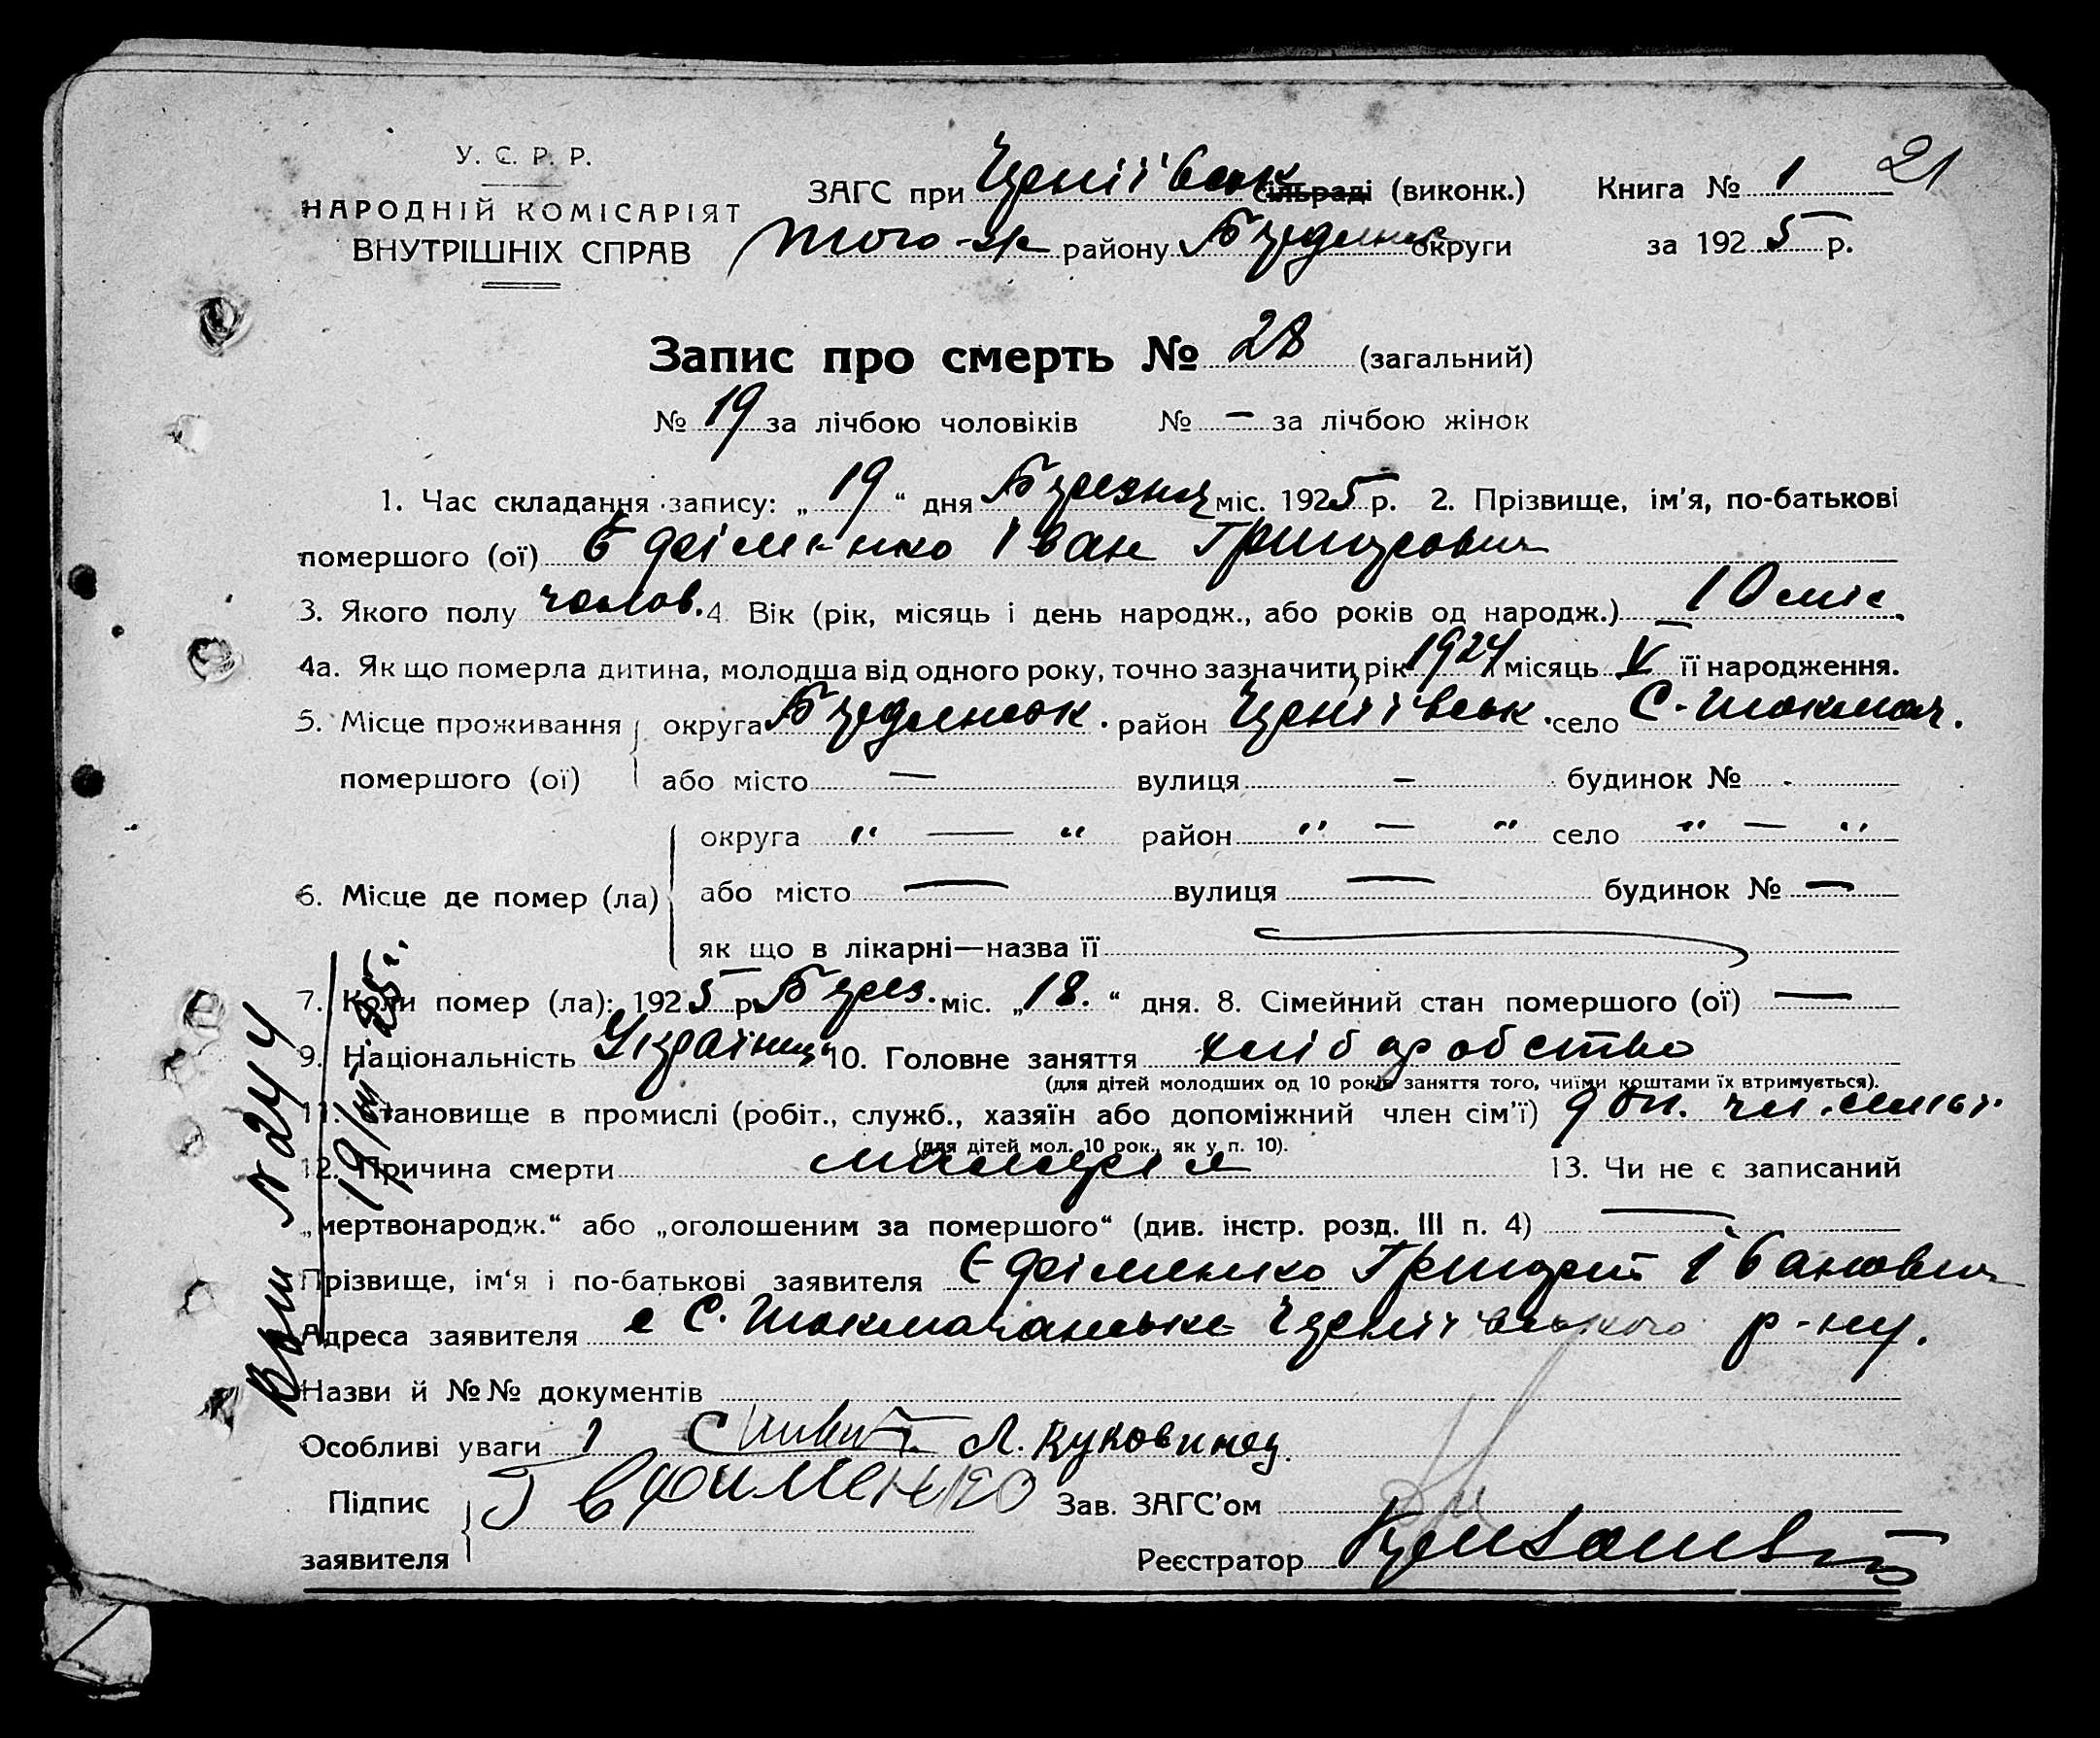 У. С. Р. Р.
НАРОДНІЙ КОМІСАРІЯТ
ВНУТРІШНІХ СПРАВ
ЗАГС при Черніївськ сільраді (виконк.) Книга № 1 21
того-ж району Бердянськ округи за 1925 р.
Запис про смерть № 28 (загальний)
№ 19 за лічбою чоловіків № — за лічбою жінок
1. Час складання запису: „19“ дня Березня міс. 1925 р. 2. Прізвище, ім'я, по-батькові
помершого (ої) Єфіменко Іван Григорович
3. Якого полу чолов. 4. Вік (рік, місяць і день народж., або років од народж.) 10 міс.
4а. Як що померла дитина, молодша від одного року, точно зазначити рік 1924 місяць V її народження.
5. Місце проживання помершого (ої) округа Бердянськ. район Черніївськ. село С-Токмач.
або місто — вулиця — будинок № -
6. Місце де помер (ла) округа „ — “ район „ — “ село „ — “
або місто — вулиця — будинок № —
як що в лікарні—назва її
7. Коли помер (ла): 1925 р. Берез. міс. „18.“ дня. 8. Сімейний стан помершого (ої) —
9. Національність Українець 10. Головне заняття хліборобство
(для дітей молодших од 10 років заняття того, чиїми коштами їх втримується).
11. Становище в промислі (робіт., служб., хазяїн або допоміжний член сім'ї) доп. чл. сим'ї
(для дітей мол. 10 рок., як у п. 10).
12. Причина смерти малярія 13. Чи не є записаний
„мертвонародж.“ або „оголошеним за помершого“ (див. інстр. розд. III п. 4) —
Прізвище, ім'я і по-батькові заявителя Єфіменко Григорий Іванович
Адреса заявителя с С. Токмачанське Черніївського р-ну.
Назви й №№ документів
Особливі уваги 1 Л. Куковинец.
Підпис заявителя Г Ефименко Зав. ЗАГС'ом
Реєстратор
№ 244
19/III 25 г.